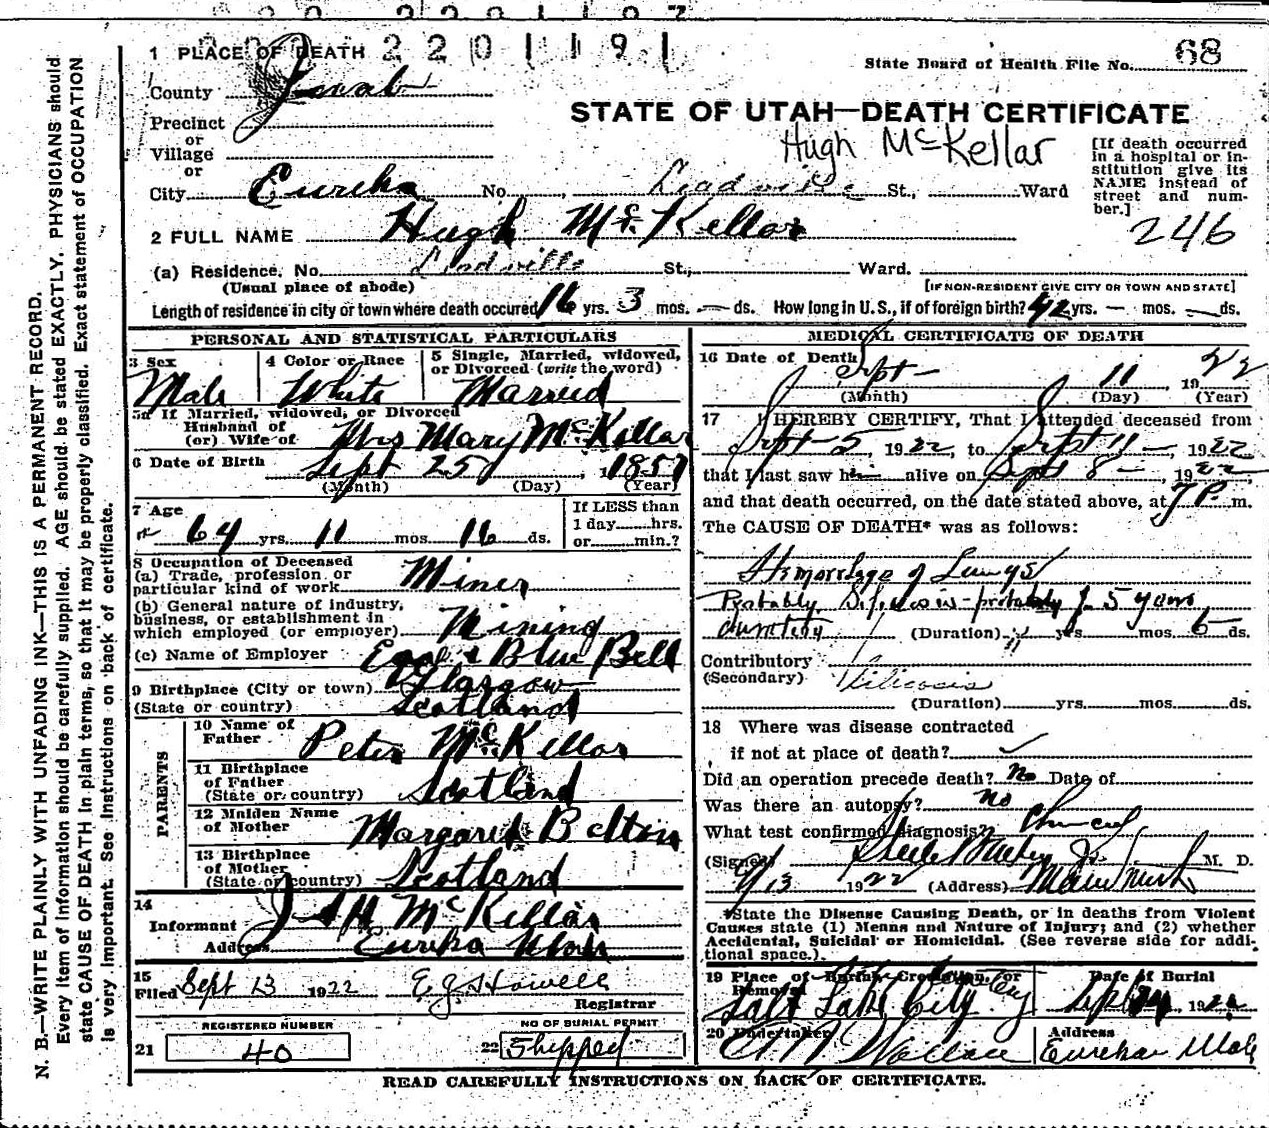 2201191
1 PLACE OF DEATH
State Board of Health File No. 68
County Juab
STATE OF UTAH—DEATH CERTIFICATE
Precinct
or
Village
or
Hugh McKellar
[If death occurred in a hospital or institution give its NAME instead of street and number.]
City Eureka No. St., Ward
246
2 FULL NAME Hugh McKellar
(a) Residence. No. Leadville St., Ward.
(Usual place of abode)
[IF NON-RESIDENT GIVE CITY OR TOWN AND STATE]
Length of residence in city or town where death occured 16 yrs. 3 mos. — ds. How long in U.S., if of foreign birth? 42 yrs. — mos. — ds.
PERSONAL AND STATISTICAL PARTICULARS
3 Sex
Male
4 Color or Race
White
5 Single, Married, widowed, or Divorced (write the word)
Married
5a If Married, widowed, or Divorced
Husband of
(or) Wife of Mrs Mary McKellar
6 Date of Birth Sept 25, 1857
(Month) (Day) (Year)
7 Age
64 yrs. 11 mos. 16 ds.
If LESS than
1 day hrs.
or min.?
8 Occupation of Deceased
(a) Trade, profession or
particular kind of work Miner
(b) General nature of industry,
business, or establishment in
which employed (or employer) Mining
(c) Name of Employer Eagle & Blue Bell
9 Birthplace (City or town) Glasgow
(State or country) Scotland
PARENTS
10 Name of
Father Peter McKellar
11 Birthplace
of Father
(State or country) Scotland
12 Maiden Name
of Mother Margaret Belton
13 Birthplace
of Mother
(State or country) Scotland
14
Informant McKellar
Address Eureka Utah
15
Filed Sept 13 1922 E.J. Howell
Registrar
REGISTERED NUMBER
21 40
NO OF BURIAL PERMIT
22 Shipped
MEDICAL CERTIFICATE OF DEATH
16 Date of Death
Sept 11 1922
(Month) (Day) (Year)
17 I HEREBY CERTIFY, That I attended deceased from
Sept 5, 1922, to Sept 11, 1922
that I last saw him alive on Sept 8, 1922
and that death occurred, on the date stated above, at 7 P. m.
The CAUSE OF DEATH* was as follows:
Hemorrhage of Lungs
Probably probably 5 years
duration (Duration) yrs. mos. 6 ds.
Contributory
(Secondary) Silicosis
(Duration) yrs. mos. ds.
18 Where was disease contracted
if not at place of death?
Did an operation precede death? No Date of
Was there an autopsy? no
What test confirmed diagnosis?
(Signed) M. D.
9/13 1922 (Address)
*State the Disease Causing Death, or in deaths from Violent
Causes state (1) Means and Nature of Injury; and (2) whether
Accidental, Suicidal or Homicidal. (See reverse side for addi-
tional space.)
19 Place of Burial, Cremation, or
Removal
Salt Lake City
Date of Burial
Sept 14 1922
20 Undertaker
Wallace
Address
Eureka Utah
READ CAREFULLY INSTRUCTIONS ON BACK OF CERTIFICATE.
N. B.—WRITE PLAINLY WITH UNFADING INK—THIS IS A PERMANENT RECORD.
Every item of information should be carefully supplied. AGE should be stated EXACTLY. PHYSICIANS should
state CAUSE OF DEATH in plain terms, so that it may be properly classified. Exact statement of OCCUPATION
is very important. See instructions on back of certificate.